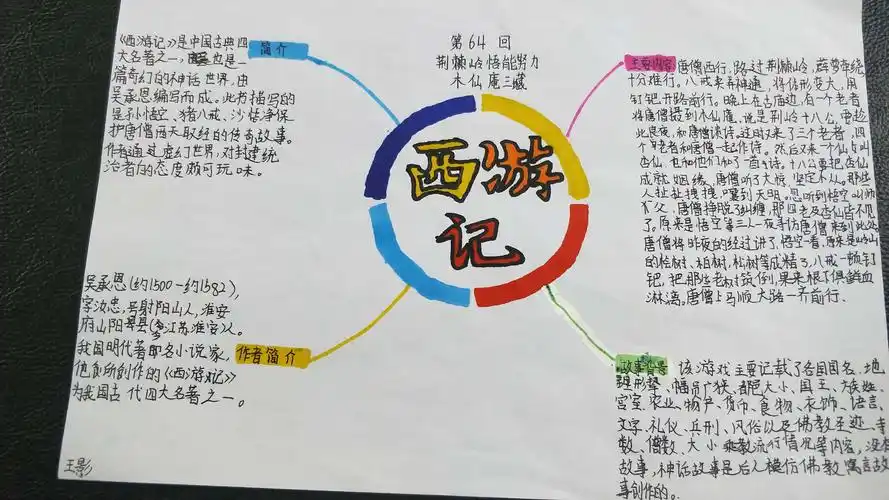 第64回
荆棘岭悟能努力
木仙庵三藏
西游
记
简介
《西游记》是中国古典四
大名著之一,也是一
篇奇幻的神话世界,由
吴承恩编写而成。此书描写的
是孙悟空、猪八戒、沙悟净保
护唐僧西天取经的传奇故事。
作者通过虚幻世界,对封建统
治者的态度颇可玩味。
主要内容 唐僧西行,路过荆棘岭,薜萝牵绕,
十分难行。八戒来弄神通,将身形变大,用
钉钯开路前行。晚上在古庙边,有一个老者
将唐僧摄到木仙庵,说是荆岭十八公,
良夜,和唐僧谈诗。这时又来了三个老者,四
个老者和唐僧一起作诗。然后又来一个仙女叫
杏仙,也和他们和了一首诗。十八公要把杏仙
成就姻缘,唐僧听了大惊,坚定不从。那些
人扯扯拽拽,嚷到天明。忽听到悟空叫师
父,唐僧挣脱了纠缠,那四老及杏仙皆不见
了。原来是悟空等三人一夜寻访唐僧来到此处
唐僧将昨夜的经过讲了,悟空一看,原来是
的桧树、柏树、松树等成精了,八戒一顿钉
钯,把那些老树筑倒,果来根下俱鲜血
淋漓。唐僧上马顺大路一齐前行.
吴承恩(约1500-约1582),
字汝忠,号射阳山人,淮安
府山阳县(今江苏淮安)人。
我国明代著名小说家,
他所创作的《西游记》
为我国古代四大名著之一。
作者简介
故事背景 该游戏主要记载了各国国名、地
理形势、幅员广狭、都邑大小、国王、族姓、
宫室、农业、物产、货币、食物、衣饰、语言、
文字、礼仪、兵刑、风俗以及佛教圣迹、寺
数、僧数、大小乘教流行情况等内容,没有
故事,神话故事是后人模仿佛教寓言故
事创作的。
王影